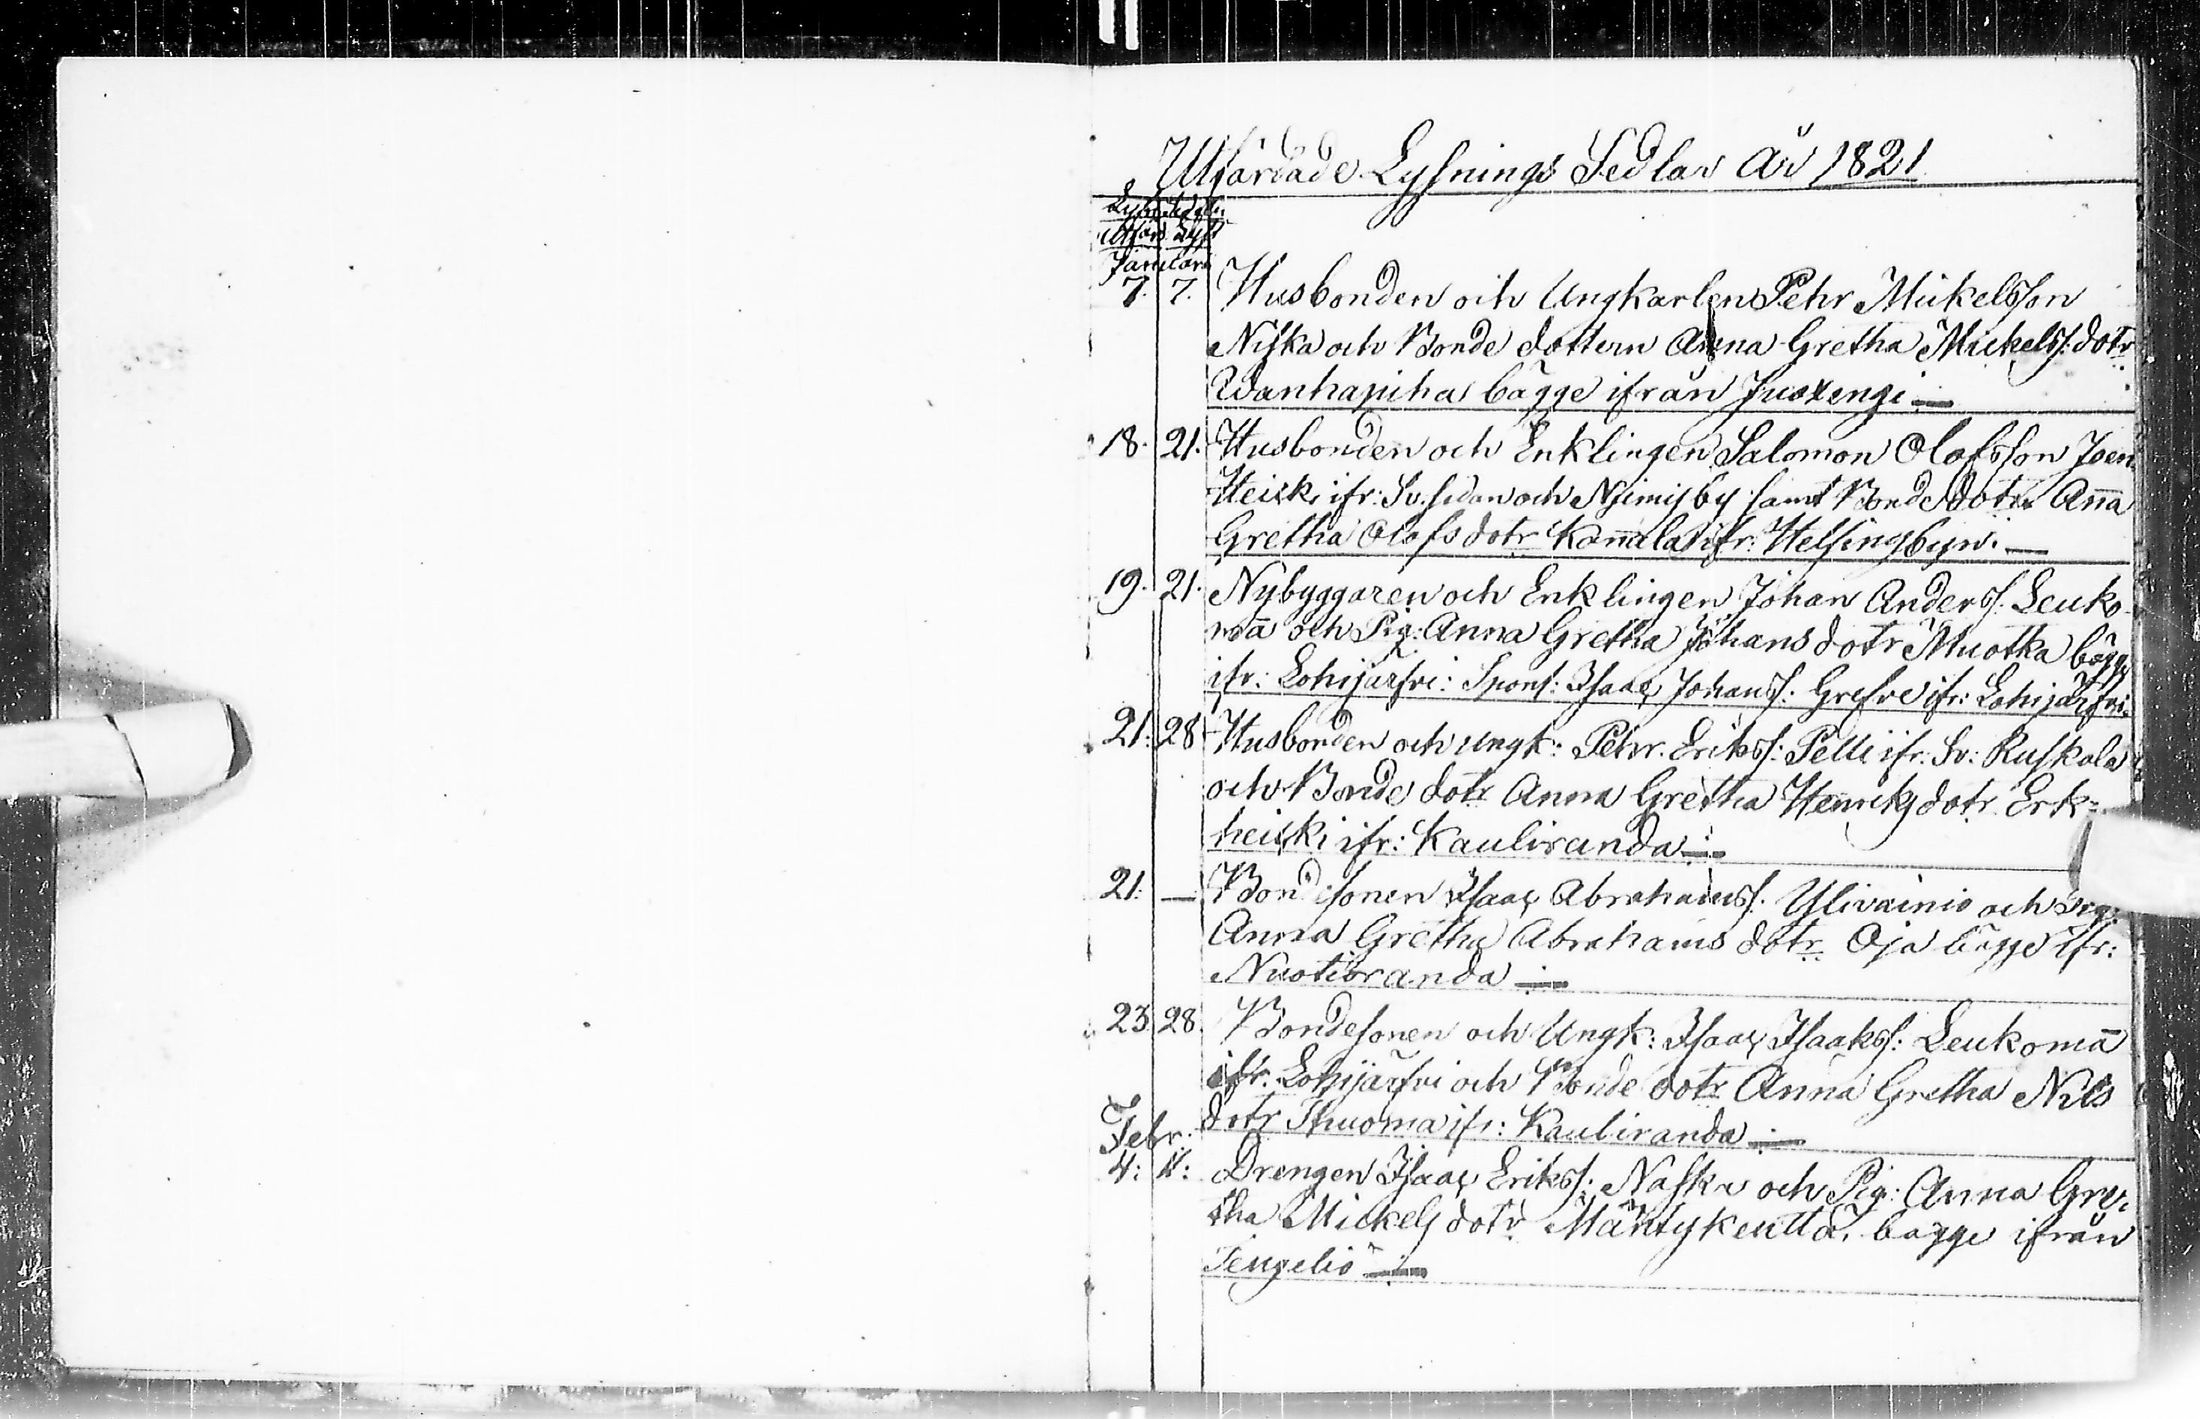 Utfärdade Lysnings Sedlar År 1821
Lysn: Sedl:
Utfärd. Lyst
Januari
7. 7. Husbonden och Ungkarlen Pehr Mickelsson
Niska och Bonde dottern Anna Gretha Mickelss: dotr
Wanhapiha bägge ifrån Juoxengi
18. 21. Husbonden och Enklingen Salomon Olofsson Joen
Heiki ifr: Sv. sidan och Niemis by samt Bonde dotr Anna
Gretha Olofs dotr Kannala ifr: Helsingbyn.
19. 21. Nybyggaren och Enklingen Johan Anderss. Leuko-
mā och Pig: Anna Gretha Johans dotr Muotka bägge
ifr: Lohijärfvi: Spons: Isaac Johanss: Grefve ifr: Lohijärfvi.
21. 28 Husbonden och ungk: Pehr Erikss: Pelli ifr: Sv: Ruskola
och Bonde dotr Anna Gretha Henriks dotr Erk=
heiki ifr: Kauliranda
21. — Bondesonen Isaac Abrahamss. Ylivainio och Pig:
Anna Gretha Abrahams dotr Oja bägge ifr:
Nuotioranda
23. 28. Bondesonen och Ungk: Isaac Isaakss: Leukomā
ifr. Lohijärfvi och Bonde dotr Anna Gretha Nils
dotr Thuoma ifr: Kauliranda
Febr:
4: 11: Drengen Isaac Erikss: Naska och Pig: Anna Gre-
tha Mickels dotr Mäntykenttä, bägge ifrån
Tengeliö